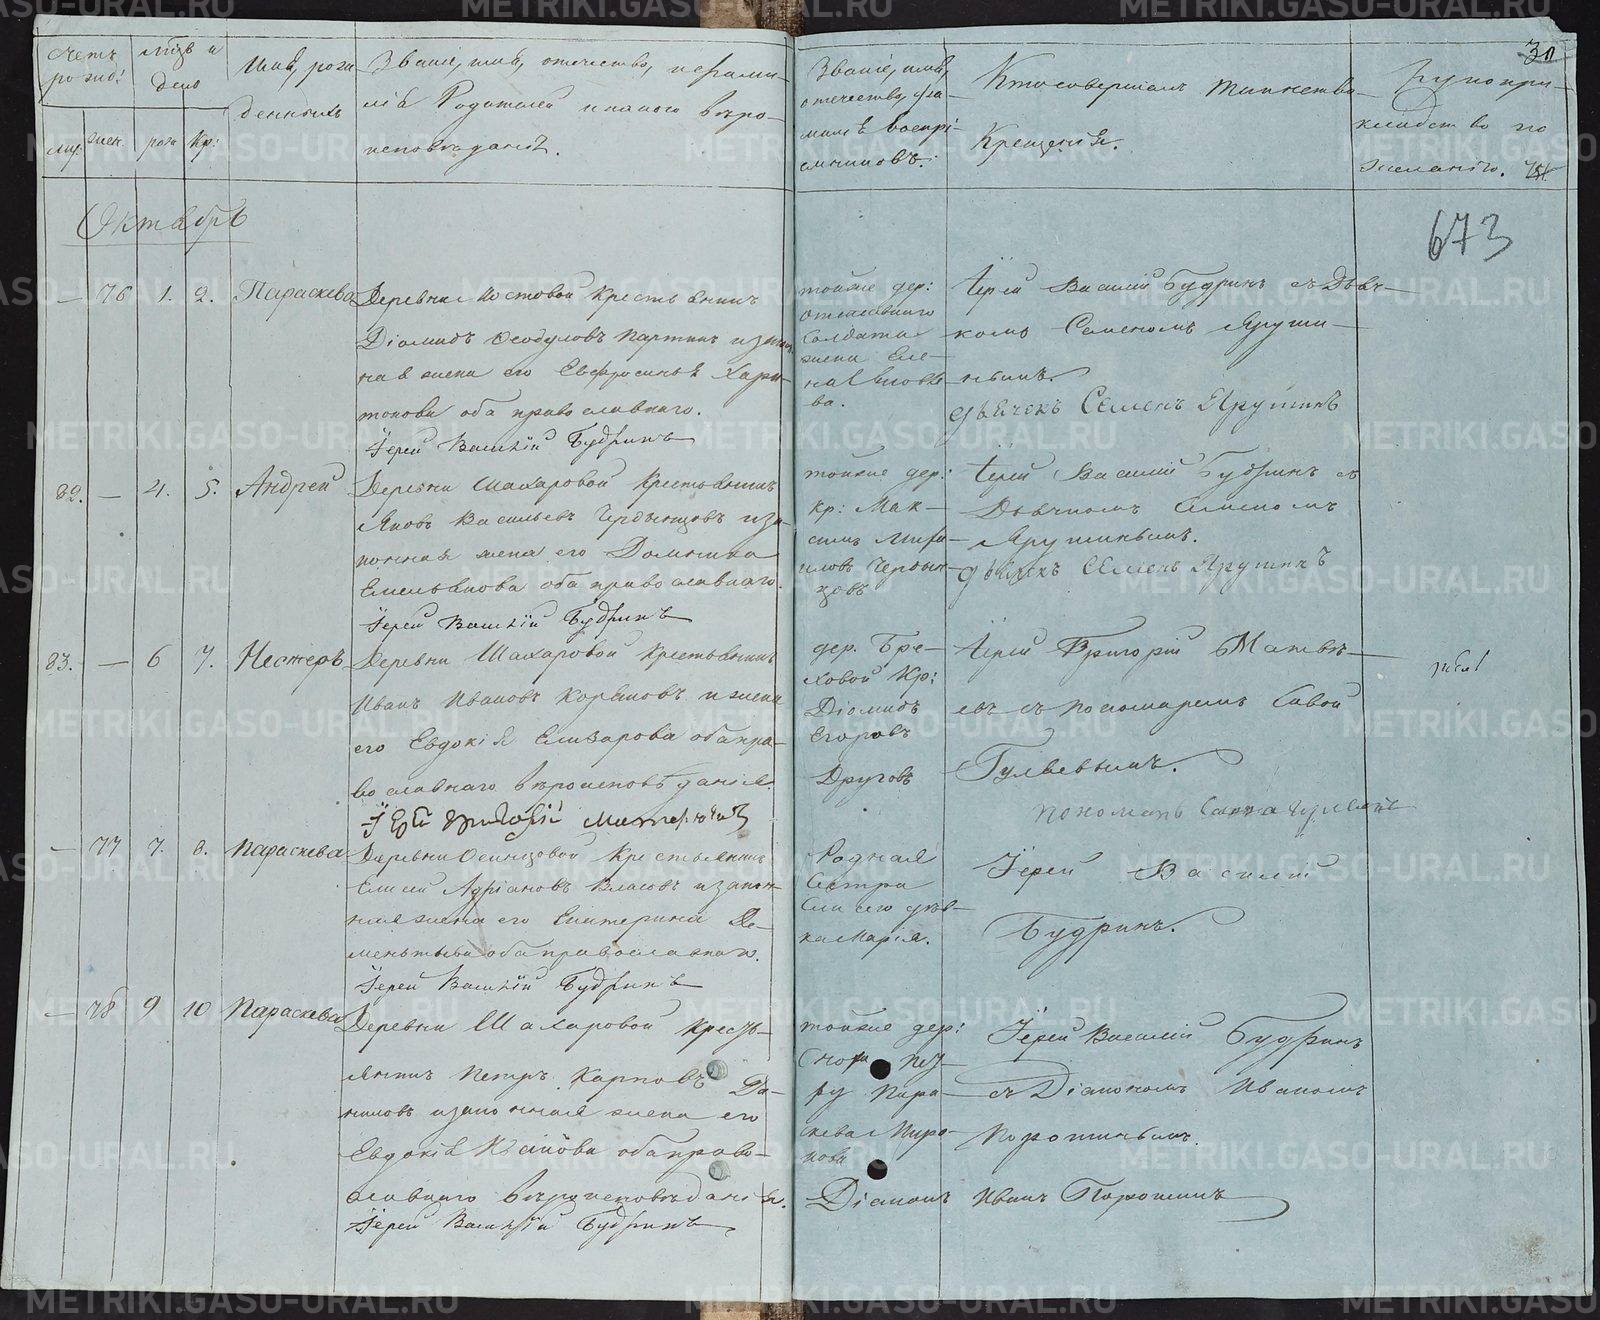 Счетъ рожд:
муж. жен.
Мѣсяцъ и день
рож. Кр:
Имя рож
денныхъ
Званіе, имя, отечество, и фами-
лія Родителей и какого вѣро-
исповѣданія.
Званіе, имя,
отечество, фа-
милія воспрі-
емниковъ.
Кто совершалъ таинство
Крещенія.
Рукопри-
кладство по
желанію.
30
673
Октябрь
— 76 1. 2. Параскева
Деревни Мостовой Крестьянинъ
Діомидъ Ѳеодуловъ Партинъ и закон
ная жена его Евфросинья Хари-
тонова оба православнаго.
Іерей Василій Будринъ
тойже дер:
солдата
жена Еле-
ва.
Іерей Василій Будринъ съ Дьяч-
комъ Семеномъ Ярушн-
нымъ.
дьячекъ Семенъ Ярушинъ
82. — 4. 5. Андрей
Деревни Шахаровой Крестьянинъ
Яковъ Васильевъ Чердынцовъ и за-
конная жена его Домника
Емельянова оба православнаго.
Іерей Василій Будринъ
тойже дер:
кр: Мак-
симъ Миха-
иловъ Чердын-
цовъ
Іерей Василій Будринъ съ
Дьячкомъ Семеномъ
Ярушинымъ.
дьячекъ Семенъ Ярушинъ
83. — 6 7. Нестеръ
Деревни Шахаровой Крестьянинъ
Иванъ Ивановъ Коряковъ и жена
его Евдокія Елизарова оба пра-
вославнаго вѣроисповѣданія.
Іерей Григорій
дер. Бре-
ховой Кр:
Діомидъ
Егоровъ
Друговъ
Іерей Григорій Матвѣ-
евъ съ пономаремъ Савой
Гуляевымъ.
пономарь Савва Гуляевъ
— 77 7. 8. Параскева
Деревни Осинцовой Крестьянинъ
Елисей Адріановъ Власовъ и закон-
ная жена его Екатерина Де-
ментьева оба православнаго.
Іерей Василій Будринъ
Родная
Сестра
Елисея дѣв-
ка Марія.
Іерей Василій
Будринъ.
— 78 9 10 Параскева
Деревни Шахаровой Кресть-
янинъ Петръ Карповъ Да-
ниловъ и законная жена его
Евдокія оба право-
славнаго вѣроисповѣданія.
Іерей Василій Будринъ
тойже дер:
Пара-
скева Миро-
нова
Іерей Василій Будринъ
съ Діакономъ Иваномъ
Порошинымъ.
Діаконъ Иванъ Порошинъ
METRIKI.GASO-URAL.RU